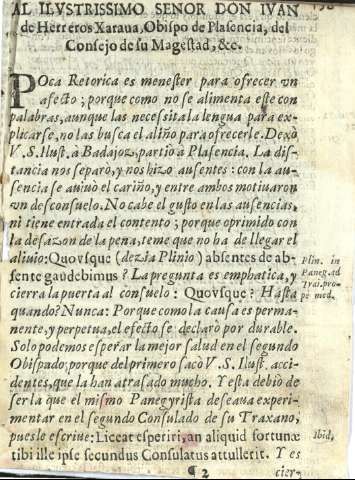 AL ILVSTRISSIMO SEÑOR DON IVAN
de Herreros Xaraua, Obispo de Plasencia, del
Consejo de su Magestad, &c.
POca Retorica es menester para ofrecer vn
afecto; porque como no se alimenta este con
palabras, aunque las necessita la lengua para ex-
plicarse, no las busca el aliño para ofrecerle. Dexò
V. S. Ilust. à Badajoz, partiò à Plasencia. La dis-
tancia nos separò, y nos hizo ausentes: con la au-
sencia se auiuò el cariño, y entre ambos motiuaron
vn desconsuelo. No cabe el gusto en las ausencias,
ni tiene entrada el contento; porque oprimido con
la desazon de la pena, teme que no ha de llegar el
aliuio: Quovsque (dezia Plinio) absentes de ab-
sente gaudebimus? La pregunta es emphatica, y
cierra la puerta al consuelo: Quovsque? Hasta
quando? Nunca: Porque como la causa es perma-
nente, y perpetua, el efecto se declarò por durable.
Solo podemos esperar la mejor salud en el segundo
Obispado; porque del primero sacò V. S. Ilust. acci-
dentes, que la han atrasado mucho. Y esta debiò de
ser la que el mismo Panegyrista deseaua experi-
mentar en el segundo Consulado de su Traxano,
pues le escriue: Liceat esperiri, an aliquid fortunæ
tibi ille ipse secundus Consulatus attullerit. Y es
¶ 2 cier-
Plin. in
Paneg. ad
Trai. pro-
pe med.
Ibid.